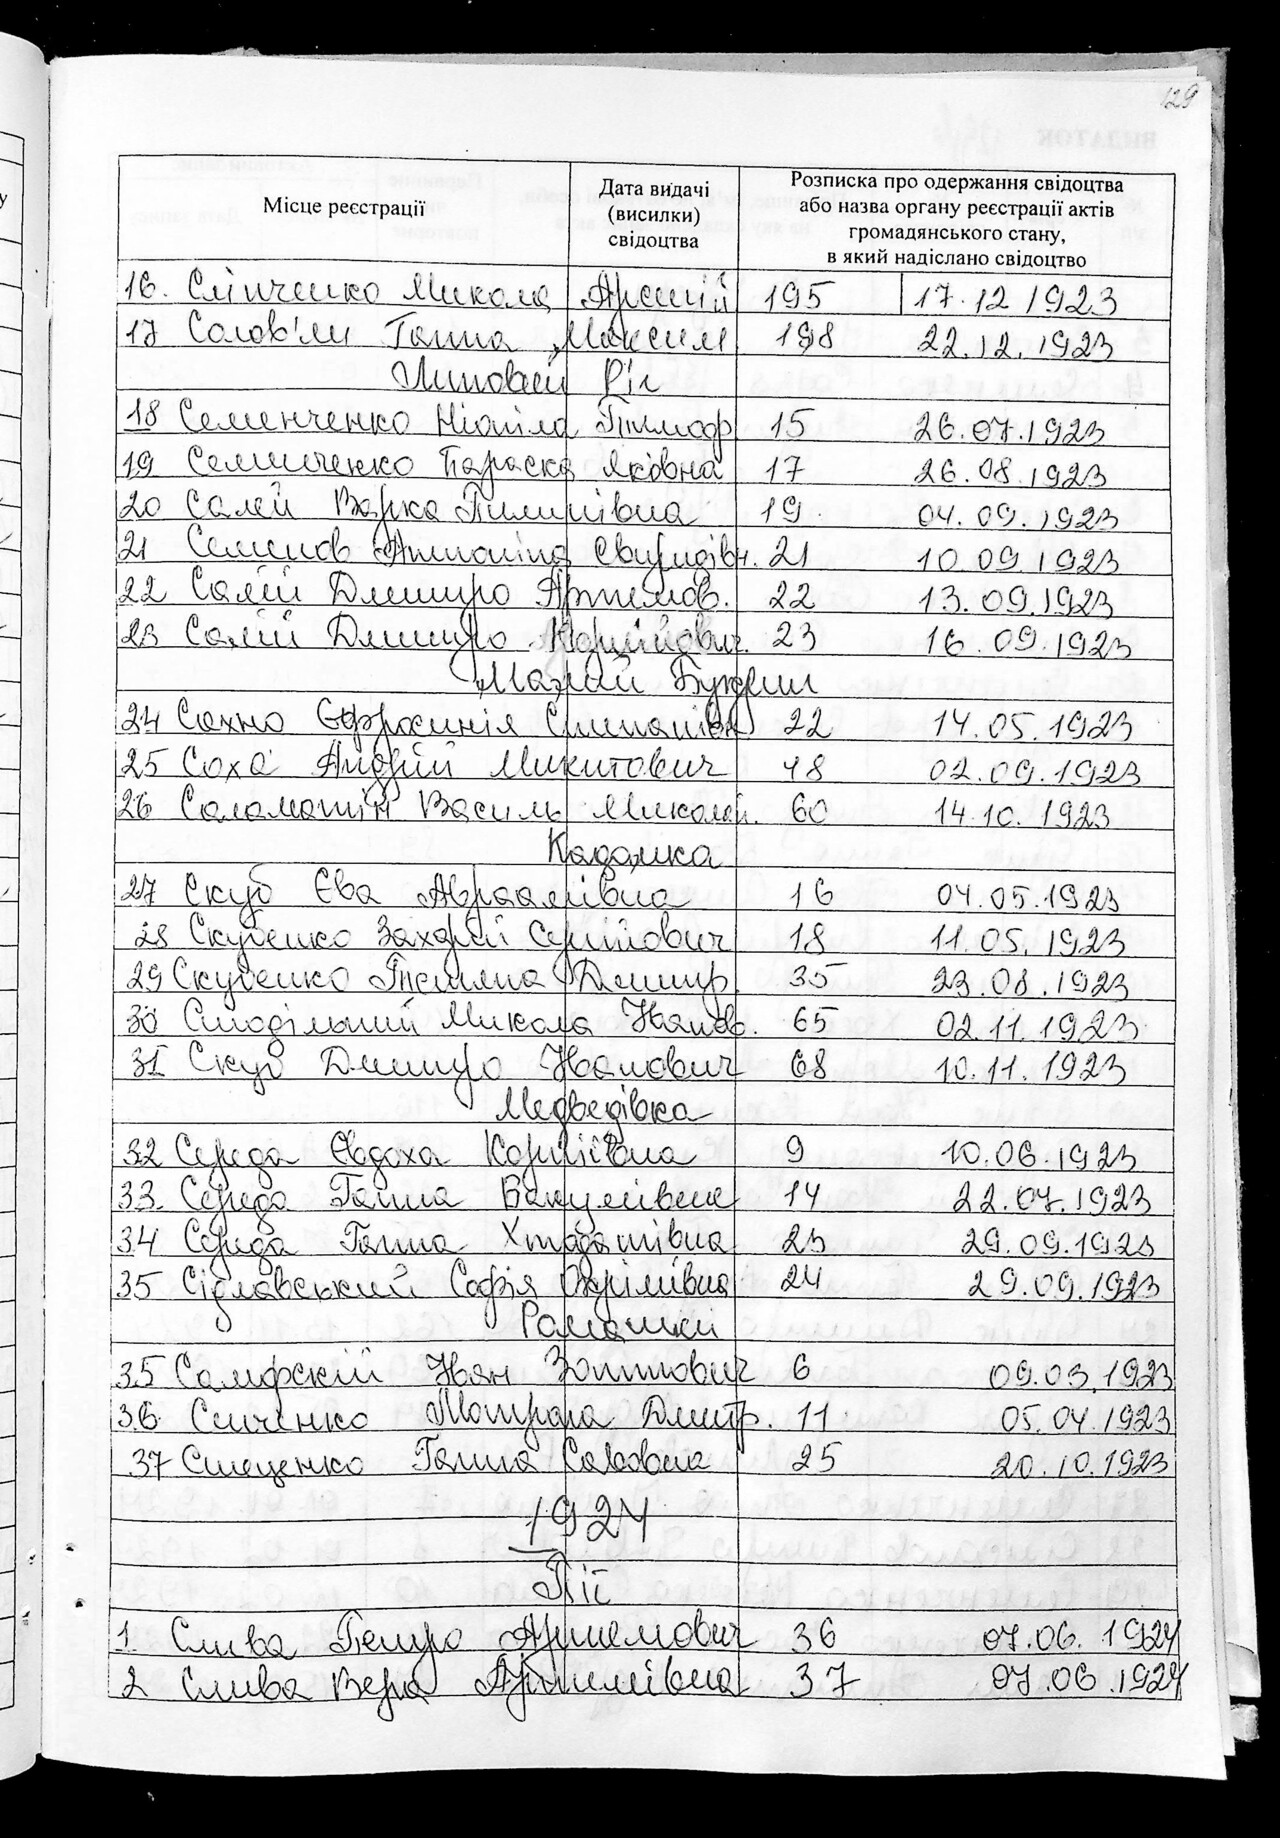 129
Місце реєстрації
Дата видачі
(висилки)
свідоцтва
Розписка про одержання свідоцтва
або назва органу реєстрації актів
громадянського стану,
в який надіслано свідоцтво
16. Слінченко Микола Арсеній 195 17.12 1923
17 Солов'ли Ганна Максим. 198 22.12.1923
Липовий Ріг
18 Семенченко Тимоф. 15 26.07.1923
19 Семенченко Параска Яковна 17 26.08.1923
20 Салей Варка Пилипівна 19 04.09.1923
21 Семенов Антоніна 21 10.09.1923
22 Салій Дмитро Артемов. 22 13.09.1923
23 Салій Дмитро Корнійович. 23 16.09.1923
Малий Букрин
24 Сахно Єфросинія Степанівн 22 14.05.1923
25 Соха Андрій Микитович 48 02.09.1923
26 Саламатін Василь Миколай. 60 14.10.1923
Кадомка
27 Скуб Єва Авраамівна 16 04.05.1923
28 Скубенко Захарій Сергійович 18 11.05.1923
29 Скубенко Тетяна Дмитр. 35 23.08.1923
30 Сподільний Микола Іванов. 65 02.11.1923
31 Скуб Дмитро Іванович 68 10.11.1923
Медведівка
32 Середа Євдоха Корніївна 9 10.06.1923
33. Середа Ганна Вакулівна 14 22.07.1923
34 Середа Ганна 23 29.09.1923
35 Сідлавський Софія Юхрімівна 24 29.09.1923
Ромашки
35 Самфскій Іван Зотович 6 09.03.1923
36 Сиченко Мотрона Дмитр. 11 05.04.1923
37 Стеценко Ганна Савовна 25 20.10.1923
1924
Пії
1. Слива Петро Артемович 36 07.06.1924
2 Слива Вера Артемівна 37 07.06.1924